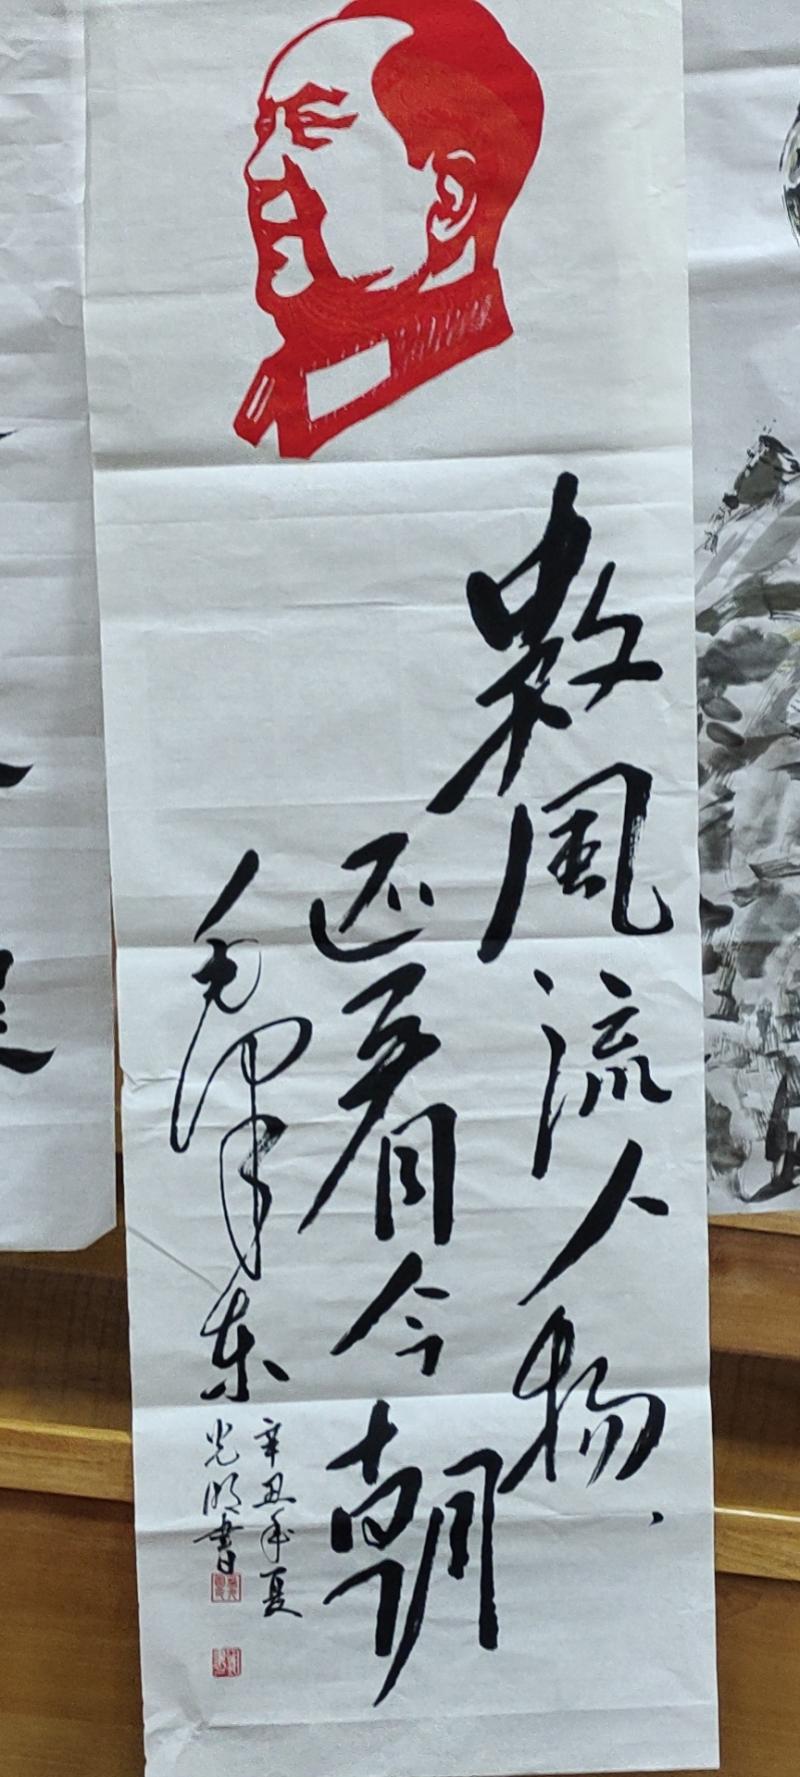 数風流人物.
还看今朝
毛泽东
辛丑年夏
光明書